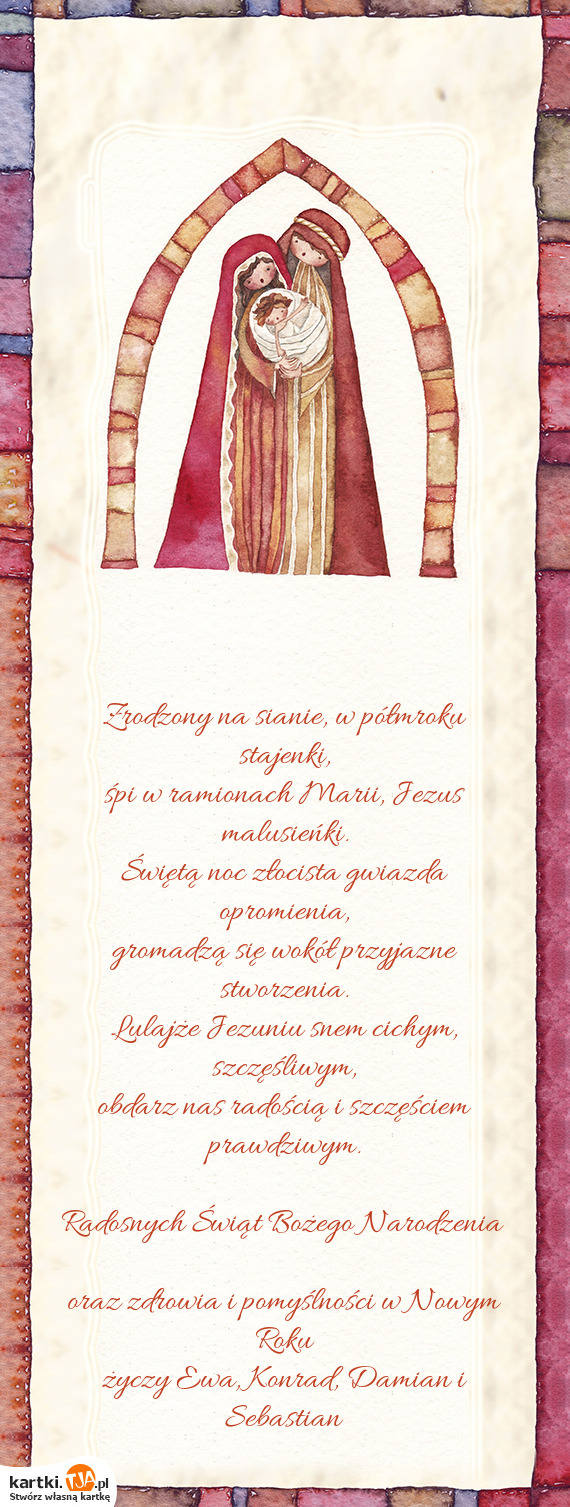 Zrodzony na sianie, w półmroku
stajenki,
śpi w ramionach Marii, Jezus
malusieńki.
Świętą noc złocista gwiazda
opromienia,
gromadzą się wokół przyjazne
stworzenia.
Lulajże Jezuniu snem cichym,
szczęśliwym,
obdarz nas radością i szczęściem
prawdziwym.
Radosnych Świąt Bożego Narodzenia
oraz zdrowia i pomyślności w Nowym
Roku
życzy Ewa, Konrad, Damian i
Sebastian
kartki.TJA.pl
Stwórz własną kartkę